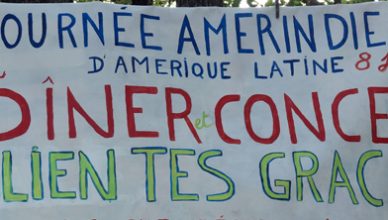 OURNÉE AMERINDIE
D'AMERIQUE LATINE 8
DÎNER et CONCE
LIENTES GRAC